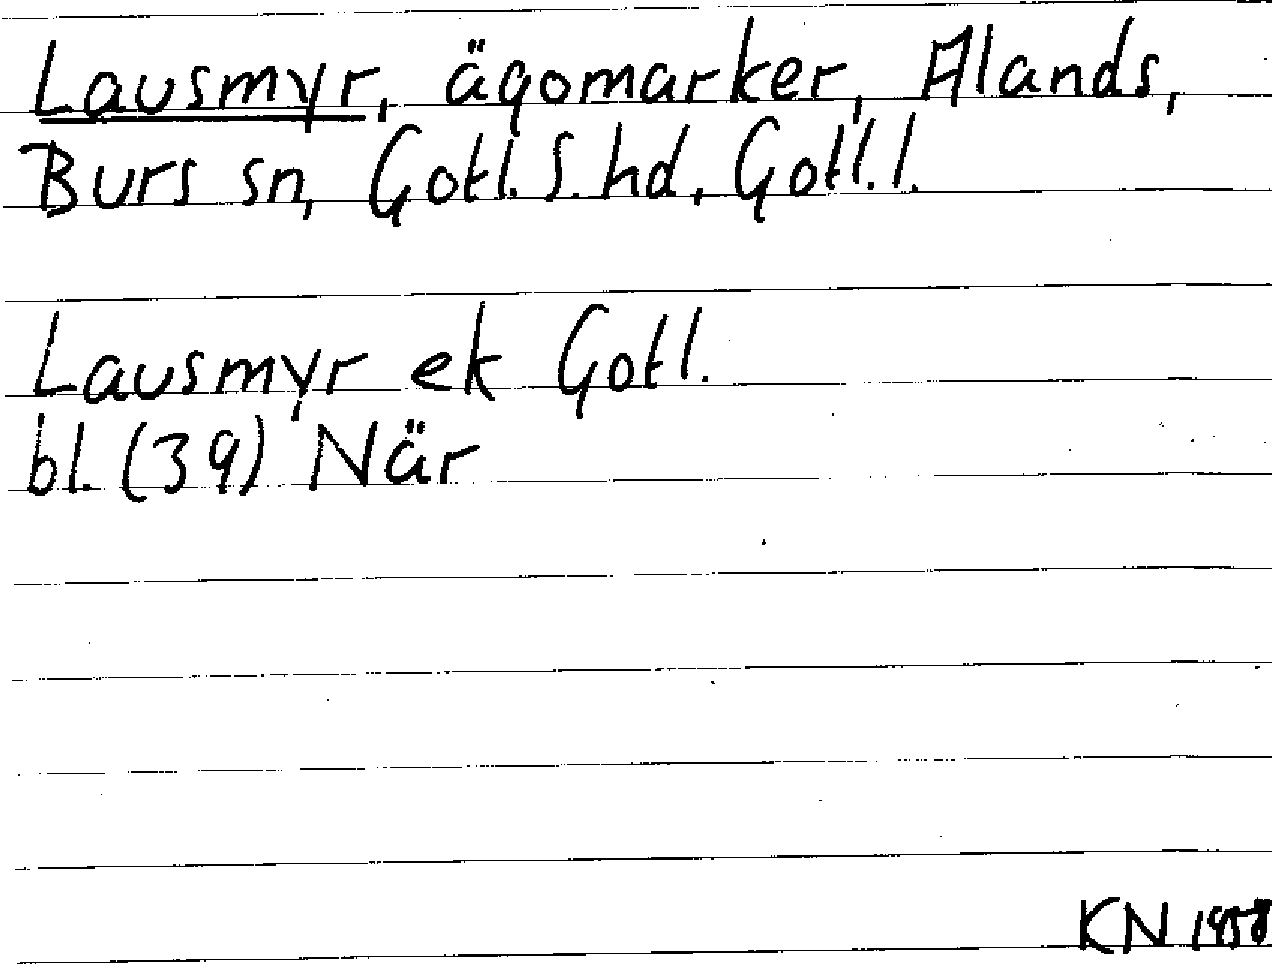 Lausmyr, ägomarker, Alands,
Burs sn, Gotl. S. hd, Gotl. l.
Lausmyr ek Gotl.
bl. (39) När
KN 1958